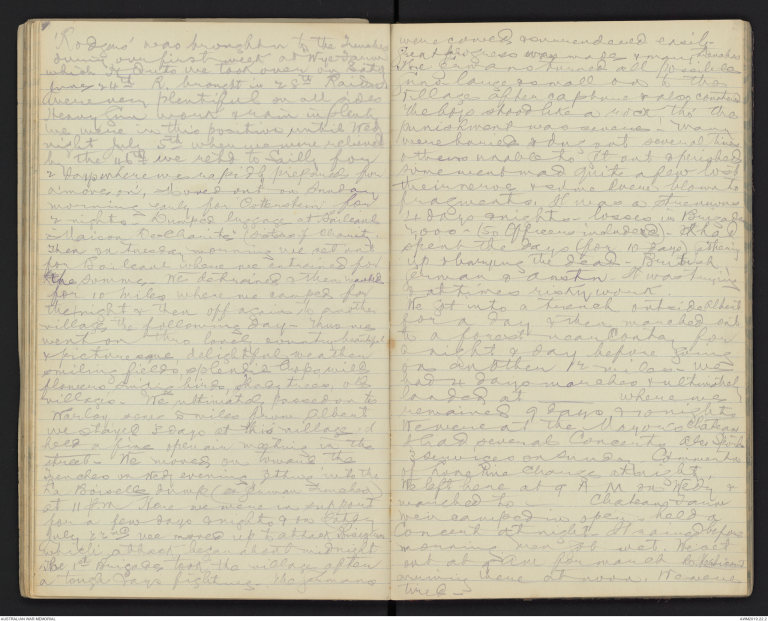 'Rodgers' was brought in to the trenches
during our first week at
which & Duties we took over on Satdy
June 24th R. brought in 28th Raiders
were very plentiful on all sides
Heavy Gun work & rain in plenty
we were in this position until Wed
night July 5th when we were relieved
by the 46th we retd to Sailly for
2 days where we rapidly prepared for
a move on, moved out on Sunday
morning early for Outtersteen for
2 nights - Dumped luggage at Bailleul
- Maison De Charité (Sisters of Charity
Then on tuesday morning we set out
for Bailleul where we entrained for
the Somme. We detrained & then marched
for 10 miles where we camped for
the night & then off again to another
village the following day - thus we
went on thro lovely country beautiful
& picturesque, delightful weather
smiling fields splendid crops wild
flowers singing birds, shady trees, old
villages. We ultimately passed on to
Warloy some 5 miles from Albert
we stayed 8 days at this village &
held a fine open air meeting in the
street - We moved on toward the
trenches on Wedy evening & thro into the
La Boiselle dump (a German trenches)
at 11 PM. Here we were in support
for a few days & nights & on Satdy
July 22nd we moved up to attack
which attack began about midnight
The 1st Brigades took the village after
a tough days fighting - The germans
were cowed & surrendered easily
Great progress was made & many trenches
The Germans turned all possible
guns large & small on to the
village after capture & also
The boys stood like a rock tho the
punishment was severe - many
were buried & dug out several times
others unable to get out & perished
some went mad quite a few lost
their nerve & some were blown to
fragments. It was a strenuous
4 days & nights - losses in Brigade
2000 - (50 Officers included) - I had
spent the days (for 10 days) gathering
up & burying the dead - British
German & Austn It was trying
& at times risky work
We got into a trench outside Albert
for a day & then marched out
to a forest near Contay for
a night & day before going
on another 12 miles - we
had 4 days marches & ultimately
landed at              where we
remained 9 days & 10 nights
We were at the Mayor's Chateau
& had several Concerts also
3 services on Sunday Commenced
of Long line Charge at night
We left here at 9 A M on Wedy &
marched to          Chateau Farm
were camped in open - held a
Concert at night - It rained before
morning men got wet. We set
out at 9 am for march to
arriving there at noon. We were
tired -
AUSTRALIAN WAR MEMORIAL